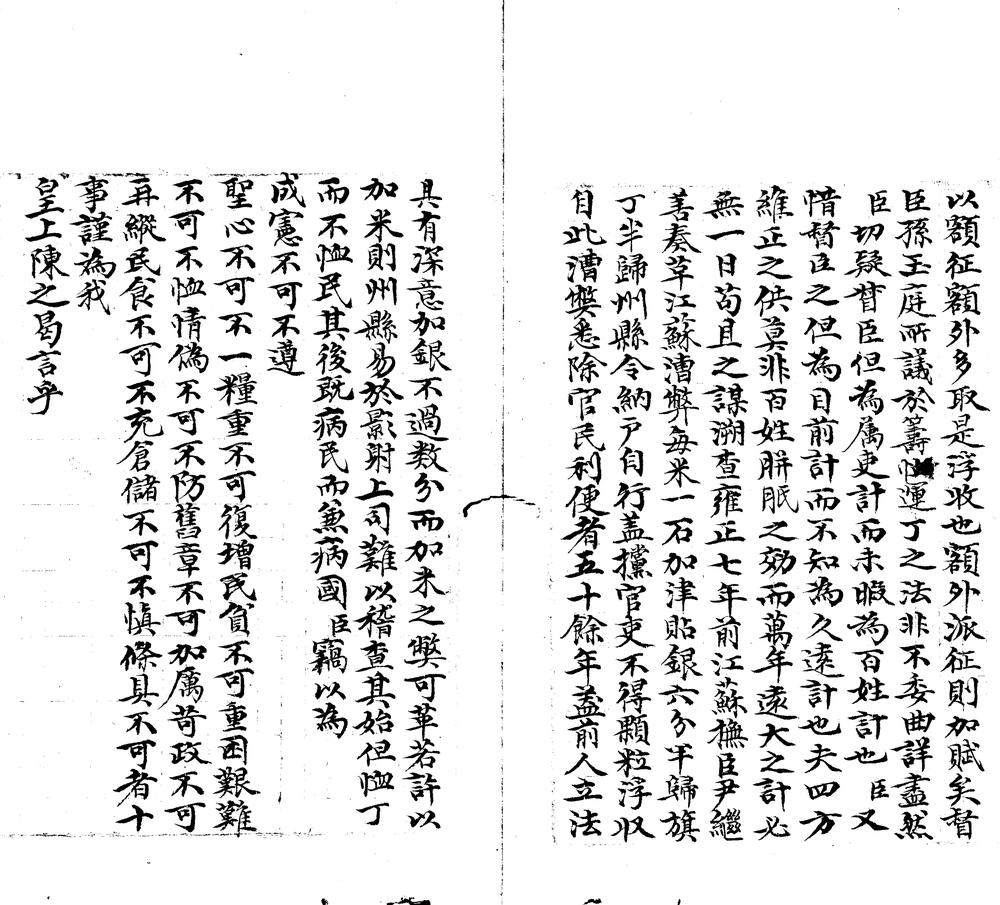 以額征額外多取是浮收也額外派征則加賦矣督
臣孫玉庭所議於籌恤運丁之法非不委曲詳盡然
臣切疑督臣但為屬吏計而未暇為百姓計也臣又
惜督臣之但為目前計而不知為久遠計也夫四方
維正之供莫非百姓胼胝之効而萬年遠大之計必
無一日苟且之謀溯查雍正七年前江蘇撫臣尹繼
善奏草江蘇漕弊每米一石加津貼銀六分半歸旗
丁半歸州縣令納戶自行蓋攩官吏不得顆粒浮收
自此漕獘悉除官民利便者五十餘年蓋前人立法
具有深意加銀不過数分而加米之獘可革若許以
加米則州縣易於影射上司難以稽查其始但恤丁
而不恤民其後既病民而兼病國臣竊以為
成憲不可不遵
聖心不可不一糧重不可復增民負不可重困艱難
不可不恤情偽不可不防舊章不可加厲苛政不可
再縱民食不可不充倉儲不可不慎條具不可者十
事謹為我
皇上陳之曷言乎